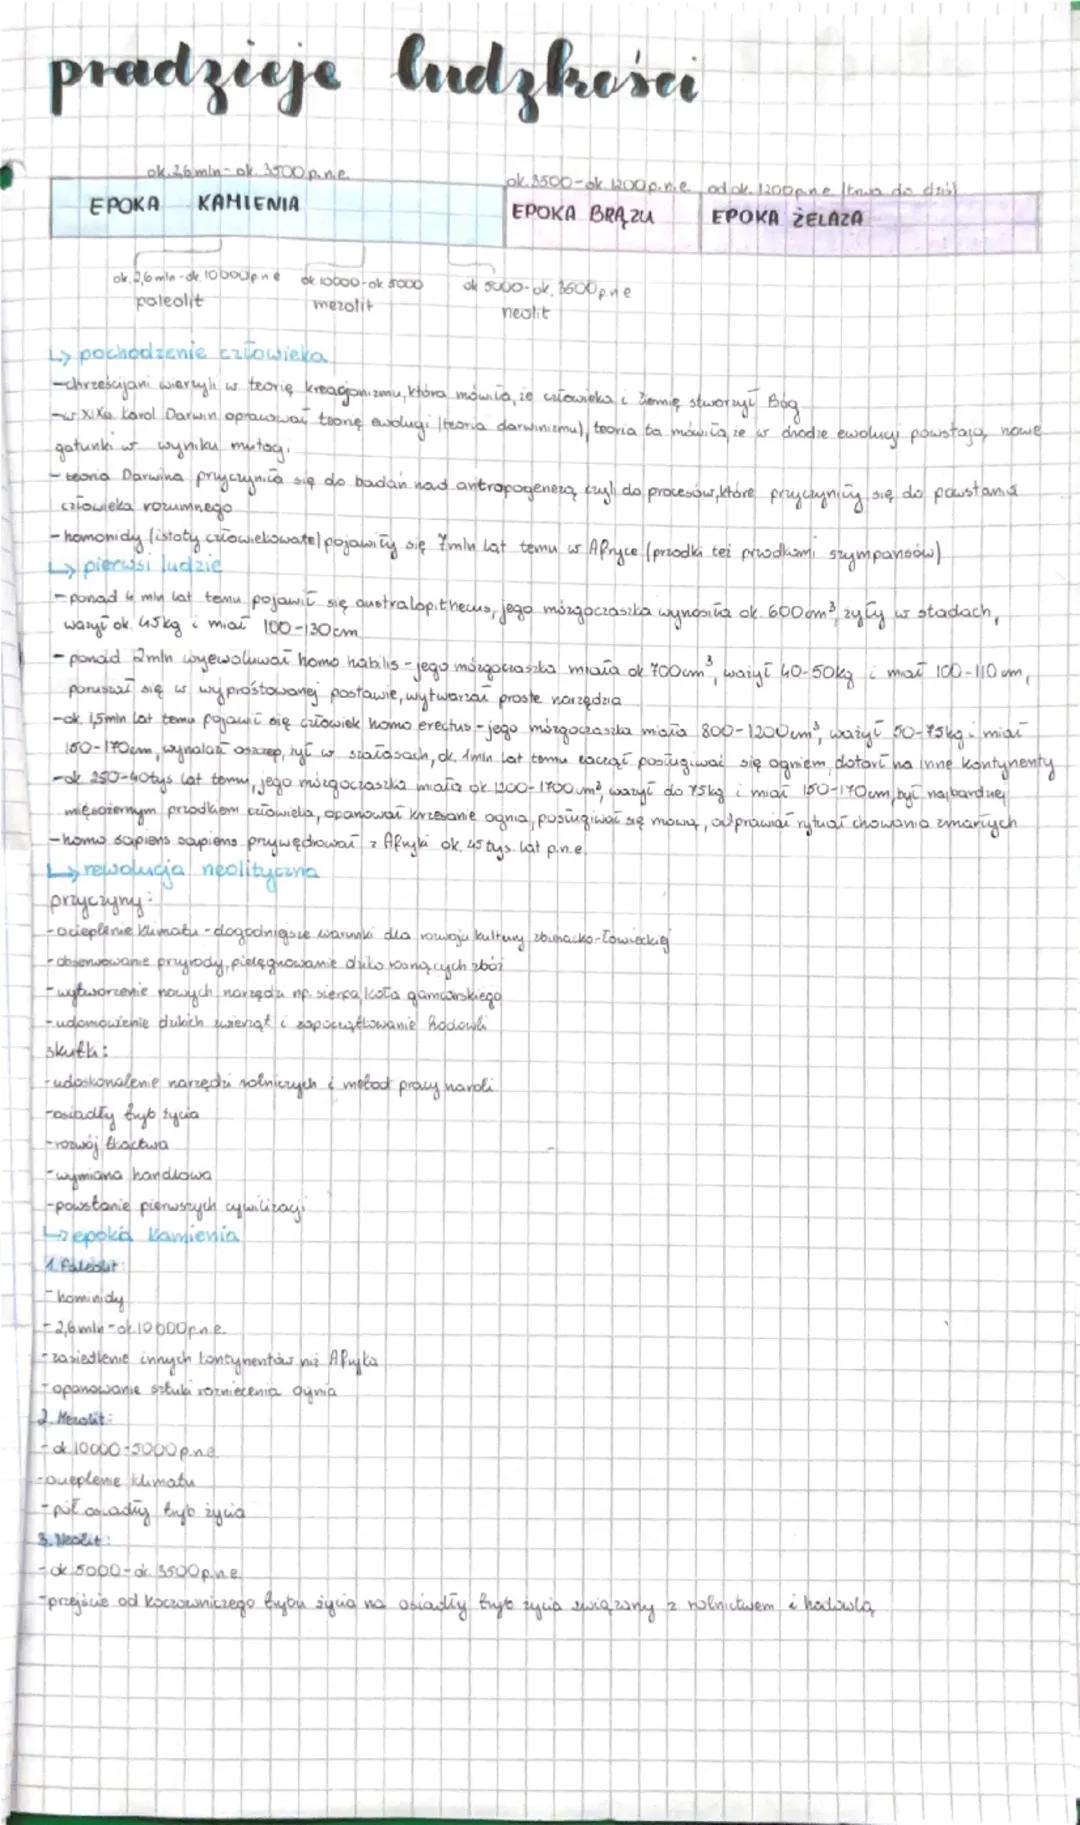 pradzieje ludzkości
ok. 2,6 mln - ok. 3500 p.n.e.
ok. 3500-ok. 1200 p.n.e. od ok. 1200 p.n.e. (trwa do dziś)
EPOKA KAMIENIA
EPOKA BRĄZU
EPOKA ŻELAZA
ok. 2,6 mln - ok. 10 000 p.n.e
ok 10000-ok 5000
ok 5000-ok. 3600 p.n.e
paleolit
mezolit
neolit
↳ pochodzenie człowieka
-chrześcijani wierzyli w teorię kreacjonizmu, która mówiła, że człowieka i Ziemię stworzył Bóg
-w XIXw. Karol Darwin opracował teorię ewolucji (teoria darwinizmu), teoria ta mówiła, że w drodze ewolucji powstają nowe
gatunki w wyniku mutacji.
- teoria Darwina przyczyniła się do badań nad antropogenezą czyli do procesów, które przyczyniły się do powstania
człowieka rozumnego
- homonidy (istoty człowiekowate) pojawiły się 7mln lat temu w Afryce (przodki też przodkami szympansów)
↳ pierwsi ludzie
- ponad 4 mln lat temu pojawił się australopithecus, jego mózgoczaszka wynosiła ok. 600cm³, żyły w stadach,
ważył ok. 45kg i miał 100-130cm
- ponad 2mln wyewoluował homo habilis - jego mózgoczaszka miała ok 700cm³, ważył 40-50kg i miał 100-110 cm,
poruszał się w wyprostowanej postawie, wytwarzał proste narzędzia
-ok. 1,5mln lat temu pojawił się człowiek homo erectus - jego mózgoczaszka miała 800-1200cm³, ważył 50-75kg i miał
150-170cm, wynalazł oszczep, żył w szałasach, ok. 1mln lat temu zaczął posługiwać się ogniem, dotarł na inne kontynenty
-ok 250-40tys lat temu, jego mózgoczaszka miała ok 1200-1700cm³, ważył do 75kg i miał 150-170cm, był najbardziej
mięsożernym przodkiem człowieka, opanował krzesanie ognia, posługiwał się mową, odprawiał rytuał chowania zmarłych
- homo sapiens sapiens przywędrował z Afryki ok. 45 tys. lat p.n.e.
↳ rewolucja neolityczna
przyczyny:
-ocieplenie klimatu - dogodniejsze warunki dla rozwoju kultury zbieracko-łowieckiej
- obserwowanie przyrody, pielęgnowanie dziko rosnących zbóż
- wytworzenie nowych narzędzi np. sierpa, koła garncarskiego
-udomowienie dzikich zwierząt i zapoczątkowanie hodowli
skutki:
-udoskonalenie narzędzi rolniczych i metod pracy na roli
-osiadły tryb życia
-rozwój tkactwa
-wymiana handlowa
-powstanie pierwszych cywilizacji
↳ epoka kamienia
1. Paleolit:
- hominidy
- 2,6 mln - ok. 10 000 p.n.e.
- zasiedlenie innych kontynentów niż Afryka
- opanowanie sztuki rozniecenia ognia
2. Mezolit:
- ok 10000-5000 p.n.e.
-ocieplenie klimatu
- pół osiadły tryb życia
3. Neolit:
-ok 5000-ok. 3500 p.n.e.
-przejście od koczowniczego trybu życia na osiadły tryb życia związany z rolnictwem i hodowlą